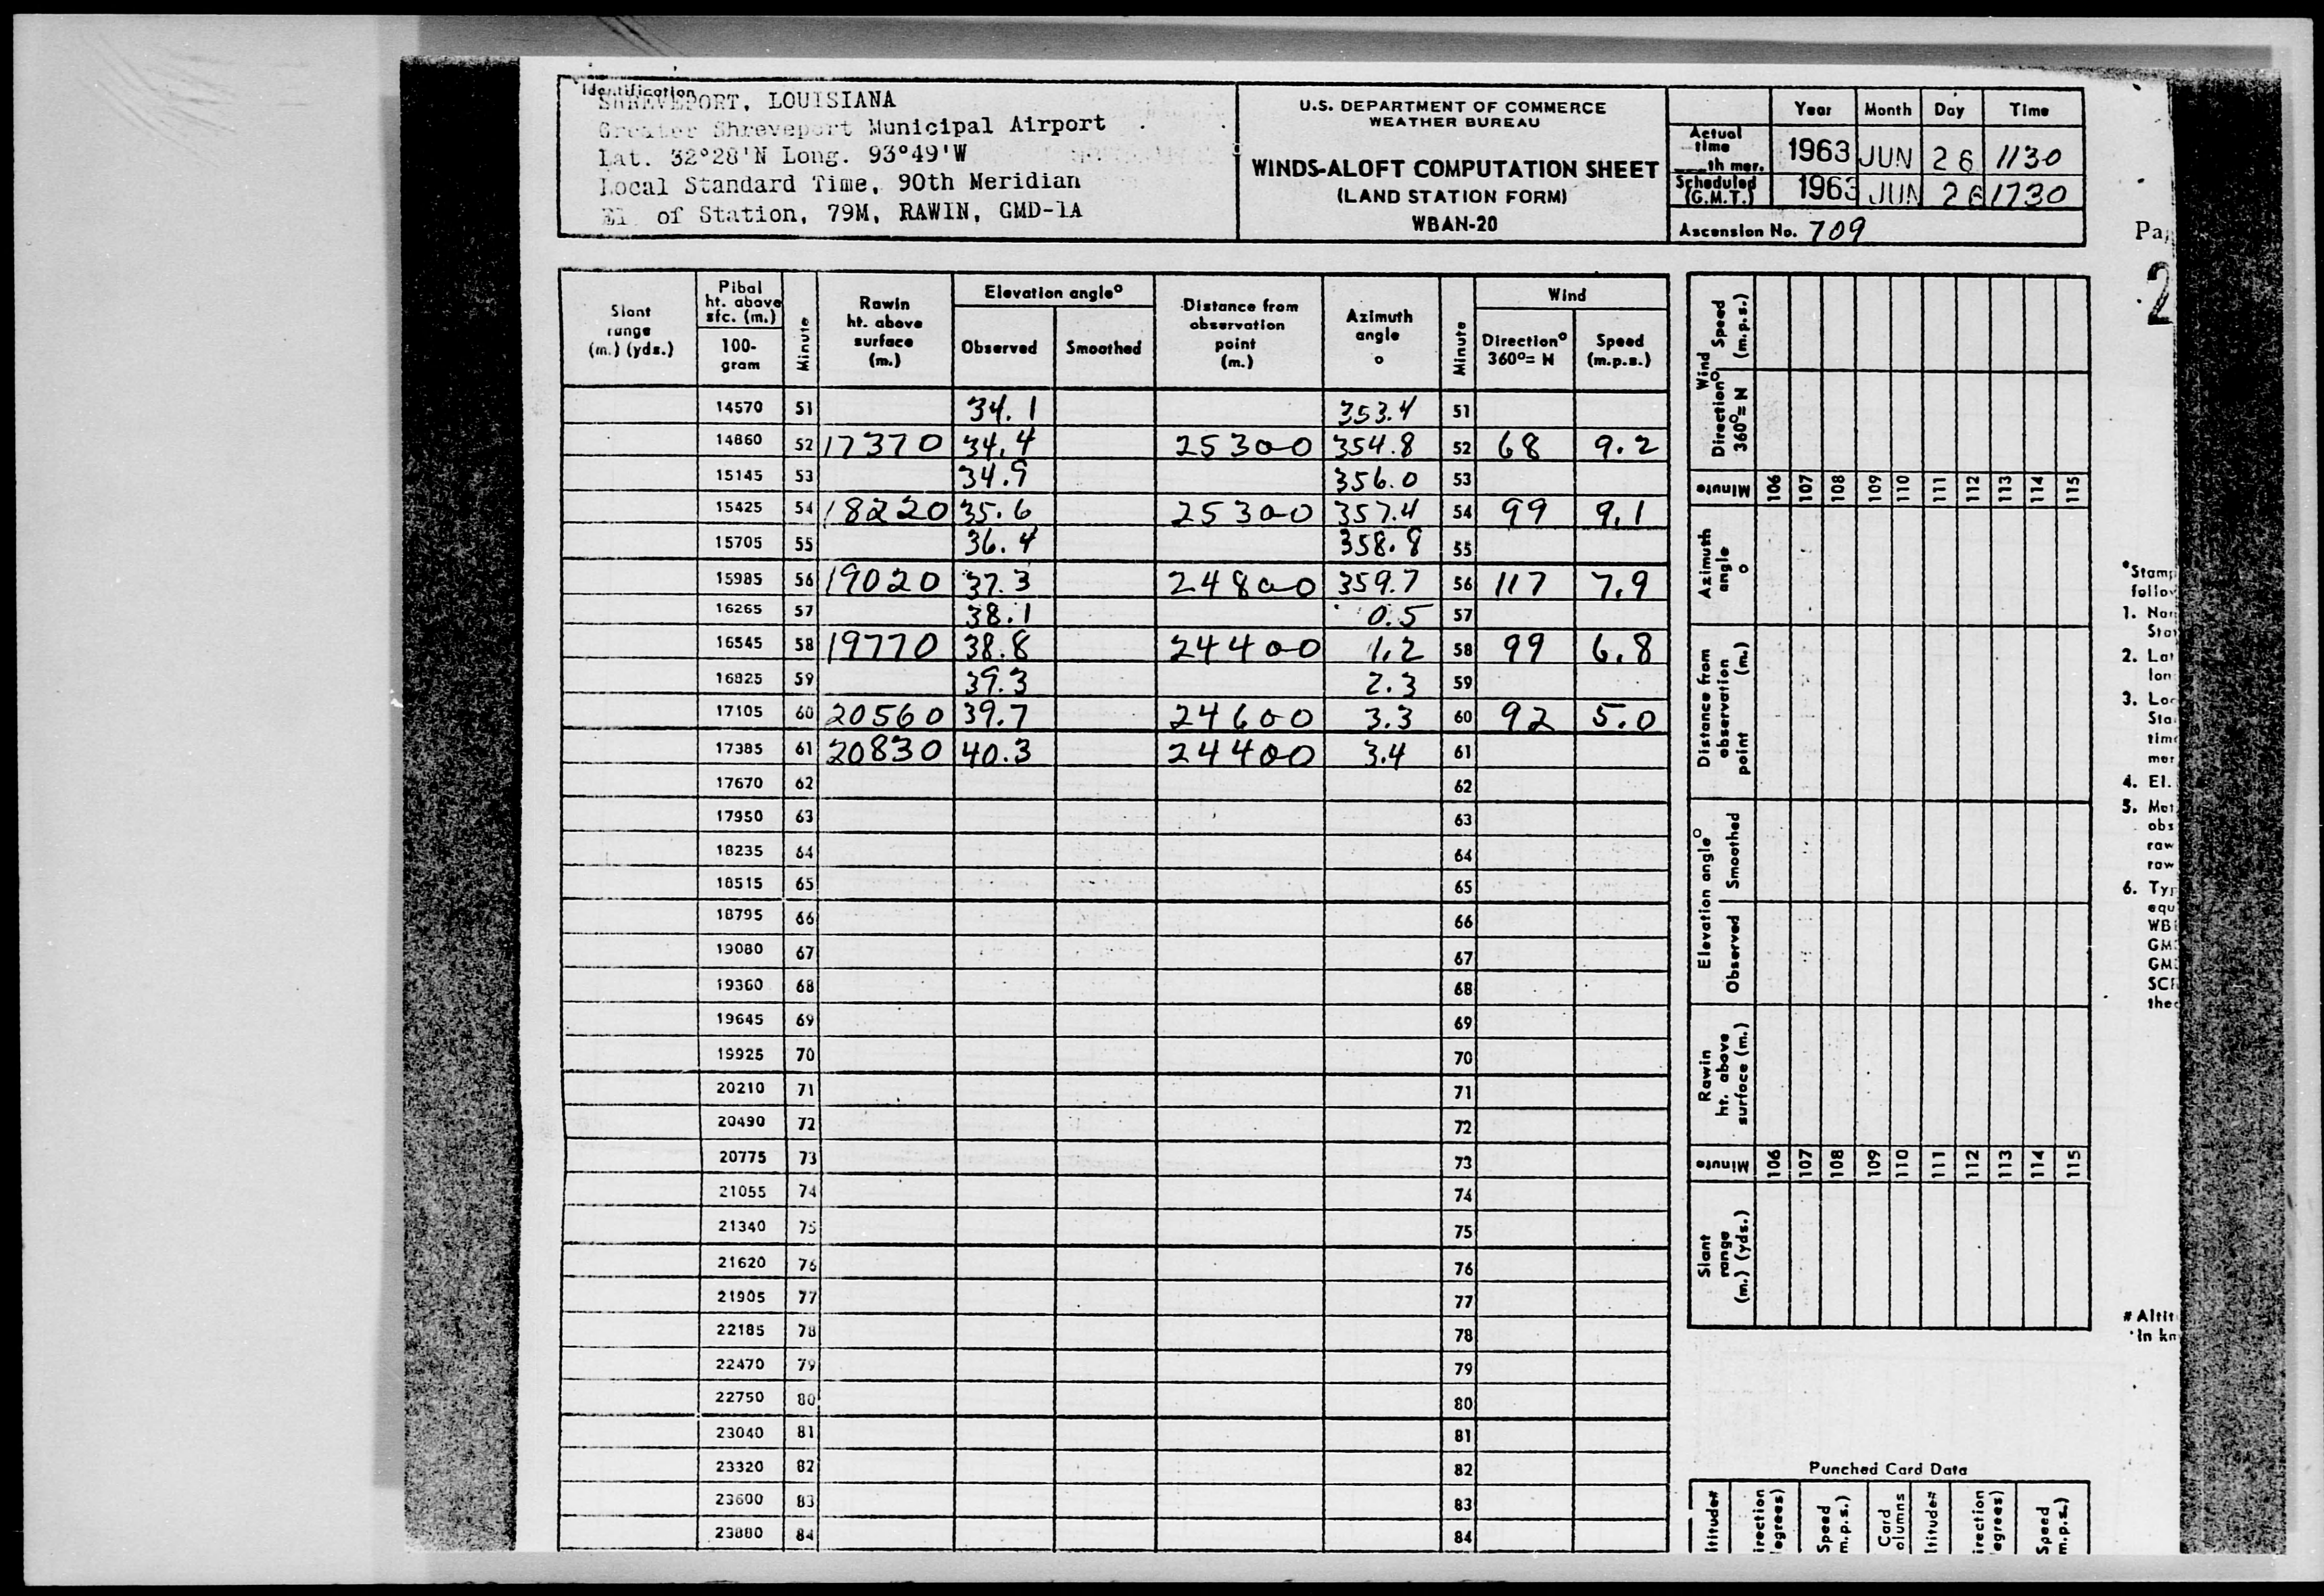 Identification
SHREVEPORT, LOUISIANA
Greater Shreveport Municipal Airport
Lat. 32°28'N Long. 93°49'W
Local Standard Time, 90th Meridian
El. of Station, 79M, RAWIN, GMD-1A
U.S. DEPARTMENT OF COMMERCE
WEATHER BUREAU
WINDS-ALOFT COMPUTATION SHEET
(LAND STATION FORM)
WBAN-20
Year Month Day Time
Actual time th mer. 1963 JUN 26 1130
Scheduled (G.M.T.) 1963 JUN 26 1730
Ascension No. 709
Slant range (m.) (yds.)
Pibal ht. above sfc. (m.)
100-gram
Minute
Rawin ht. above surface (m.)
Elevation angle°
Observed Smoothed
Distance from observation point (m.)
Azimuth angle °
Minute
Wind
Direction° 360°= N
Speed (m.p.s.)
14570 51 34.1 353.4 51
14860 52 17370 34.4 25300 354.8 52 68 9.2
15145 53 34.9 356.0 53
15425 54 18220 35.6 25300 357.4 54 99 9.1
15705 55 36.4 358.8 55
15985 56 19020 37.3 24800 359.7 56 117 7.9
16265 57 38.1 0.5 57
16545 58 19770 38.8 24400 1.2 58 99 6.8
16825 59 39.3 2.3 59
17105 60 20560 39.7 24600 3.3 60 92 5.0
17385 61 20830 40.3 24400 3.4 61
17670 62 62
17950 63 63
18235 64 64
18515 65 65
18795 66 66
19080 67 67
19360 68 68
19645 69 69
19925 70 70
20210 71 71
20490 72 72
20775 73 73
21055 74 74
21340 75 75
21620 76 76
21905 77 77
22185 78 78
22470 79 79
22750 80 80
23040 81 81
23320 82 82
23600 83 83
23880 84 84
Wind
Speed (m.p.s.)
Direction° 360°= N
Minute 106 107 108 109 110 111 112 113 114 115
Azimuth angle °
Distance from observation point (m.)
Elevation angle°
Smoothed
Observed
Rawin ht. above surface (m.)
Minute 106 107 108 109 110 111 112 113 114 115
Slant range (m.) (yds.)
2
1.
2.
3.
4. El.
5.
6.
Punched Card Data
Speed
Card
Speed